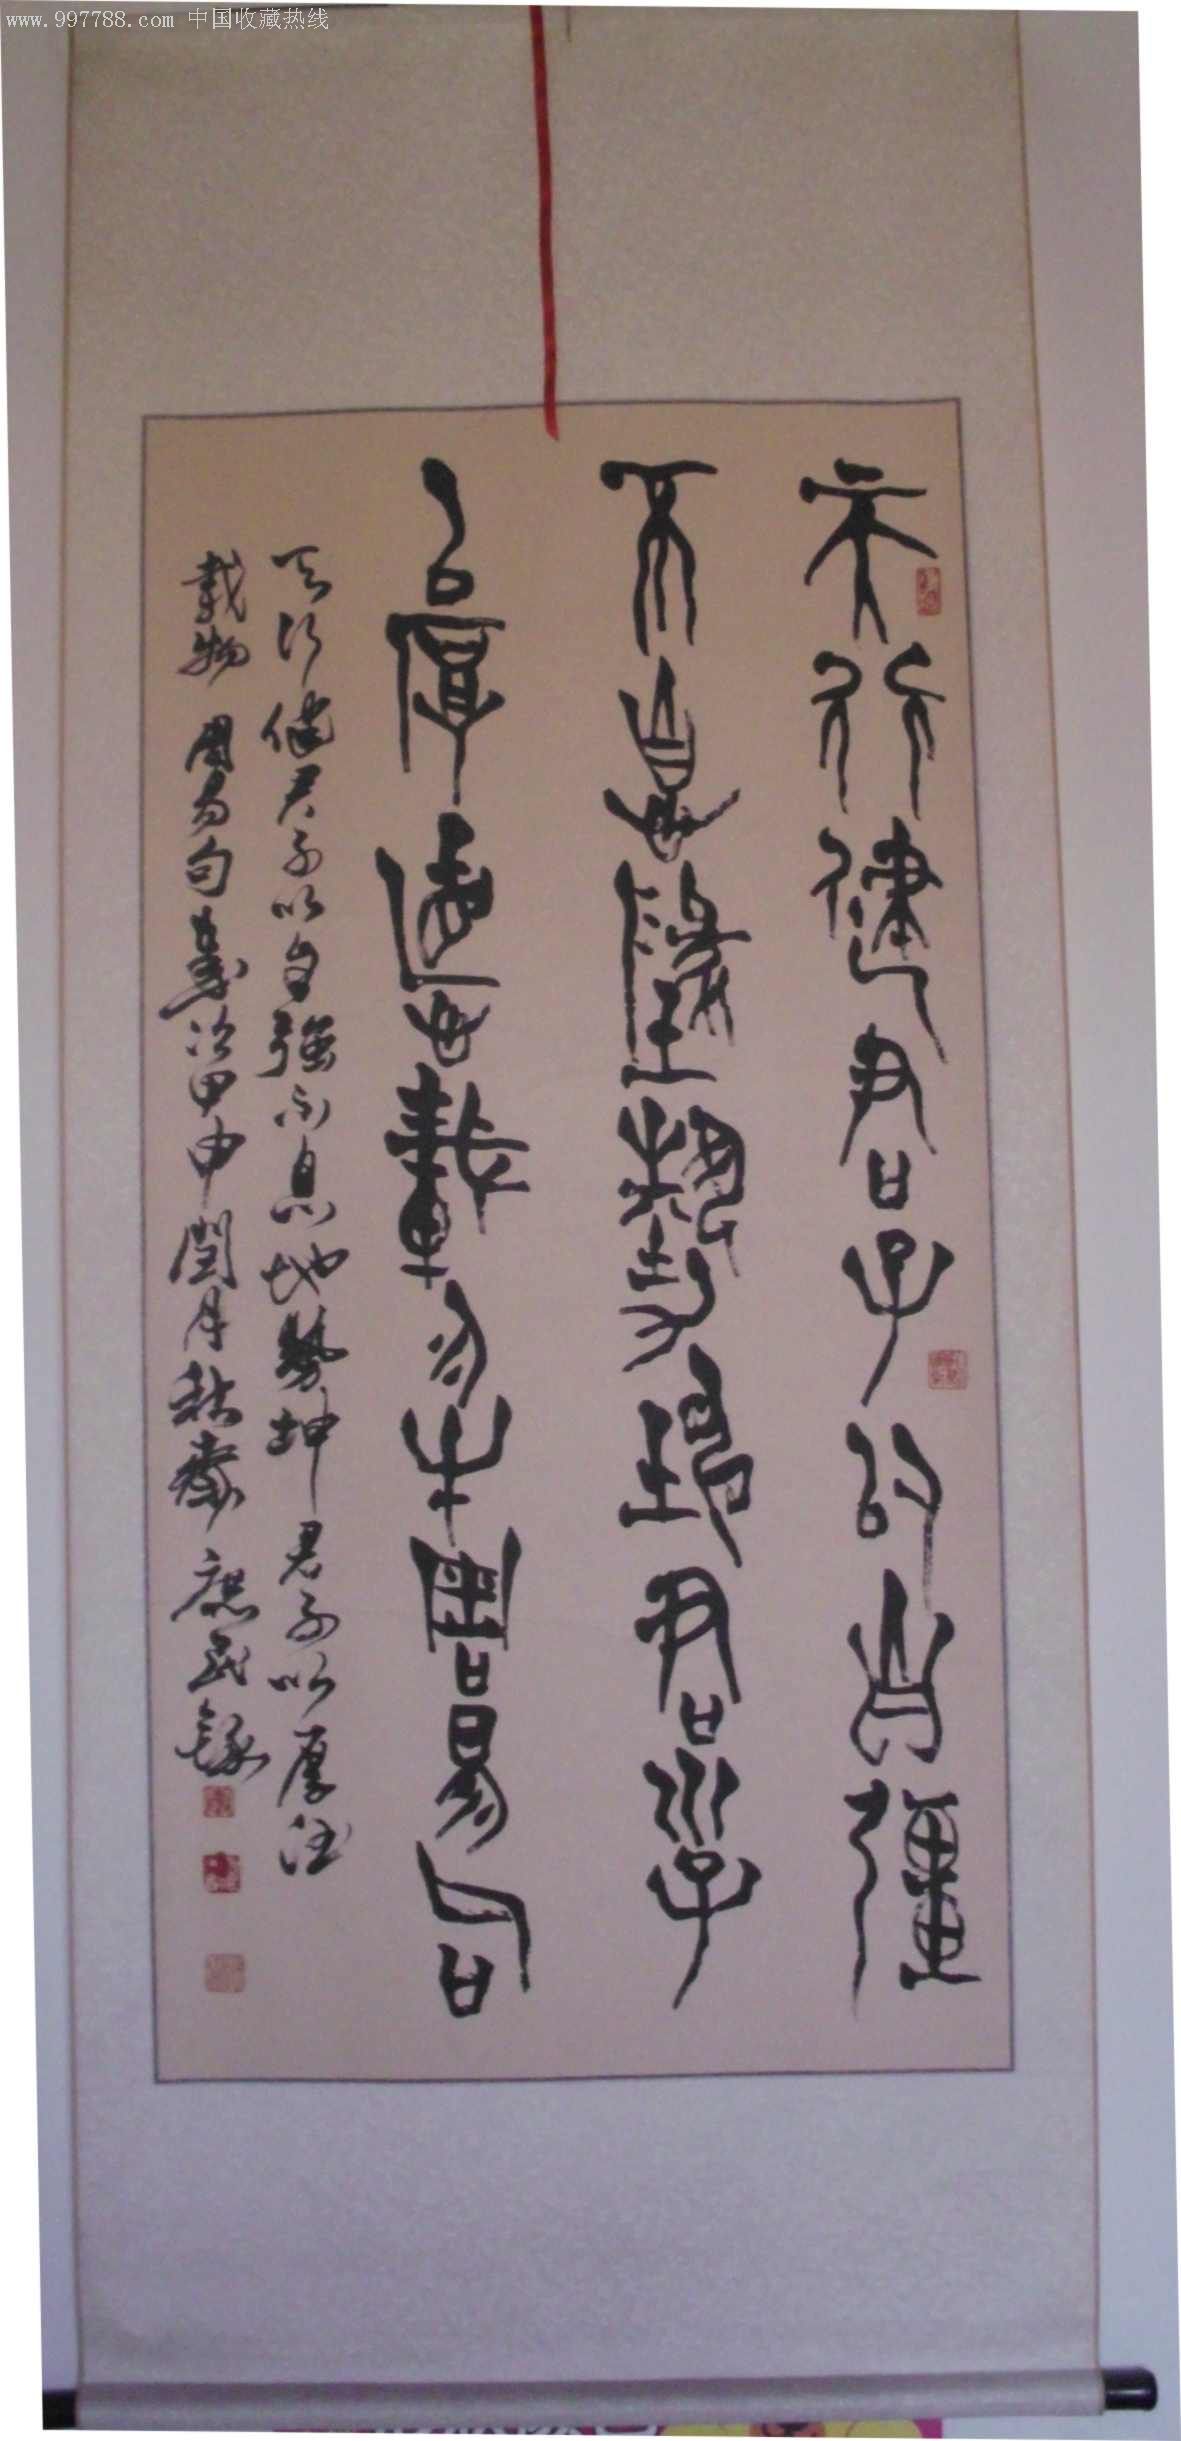 www.997788.com 中国收藏热线
天行健君子以自彊
不息地埶坤君子
以厚德載物周易句
天行健君子以自强不息地勢坤君子以厚德
載物 周易句 甲申閏月秋